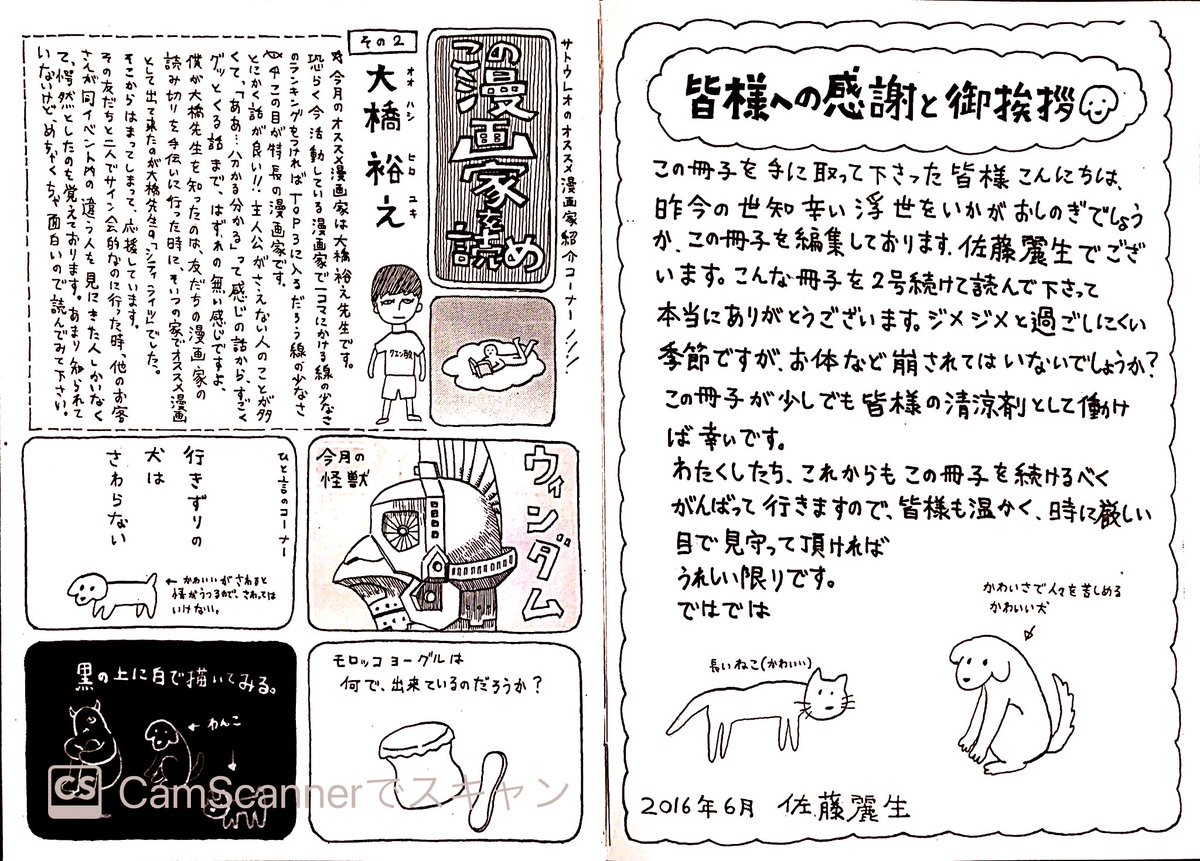 サトウレオのオススメ漫画家紹介コーナー!!
この漫画家を読め
その2
オオハシ ヒロユキ
大橋裕え
今月のオススメ漫画家は大橋裕え先生です。
恐らく今活動している漫画家で一コマにかける線の少なさ
のランキングをつければTOP3に入るだろう線の少なさ
この目が特長の漫画家です。
とにかく話が良い!!主人公がさえない人のことが多
くて、「ああ…分かる分かる」って感じの話から、すごく
グッとくる話まで、はずれの無い感じですよ。
僕が大橋先生を知ったのは、友だちの漫画家の
読み切りを手伝いに行った時に、そいつの家でオススメ漫画
として出て来たのが大橋先生の「シティライツ」でした。
そこからはまってしまって、応援しています。
その友だちと二人でサイン会的なのに行った時、他のお客
さんが同イベント内の違う人を見にきた人しかいなく
て、愕然としたのを覚えております。あまり知られて
いないけどめちゃくちゃ面白いので読んでみて下さい。
クエン酸
ひと言のコーナー
行きずりの
犬は
さわらない
←かわいいがさわると
怪がうつるので、さわっては
いけない。
今月の
怪獣
ウィンダム
黒の上に白で描いてみる。
←わんこ
モロッコヨーグルは
何で、出来ているのだろうか?
CS CamScannerでスキャン
皆様への感謝と御挨拶
この冊子を手に取って下さった皆様こんにちは、
昨今の世知辛い浮世をいかがおしのぎでしょう
か、この冊子を編集しております、佐藤麗生でござ
います。こんな冊子を2号続けて読んで下さって
本当にありがとうございます。ジメジメと過ごしにくい
季節ですが、お体など崩されてはいないでしょうか?
この冊子が少しでも皆様の清涼剤として働け
ば幸いです。
わたくしたち、これからもこの冊子を続けるべく
がんばって行きますので、皆様も温かく、時に厳しい
目で見守って頂ければ
うれしい限りです。
ではでは
かわいさで人々を苦しめる
かわいい犬
長いねこ(かわいい)
2016年6月 佐藤麗生